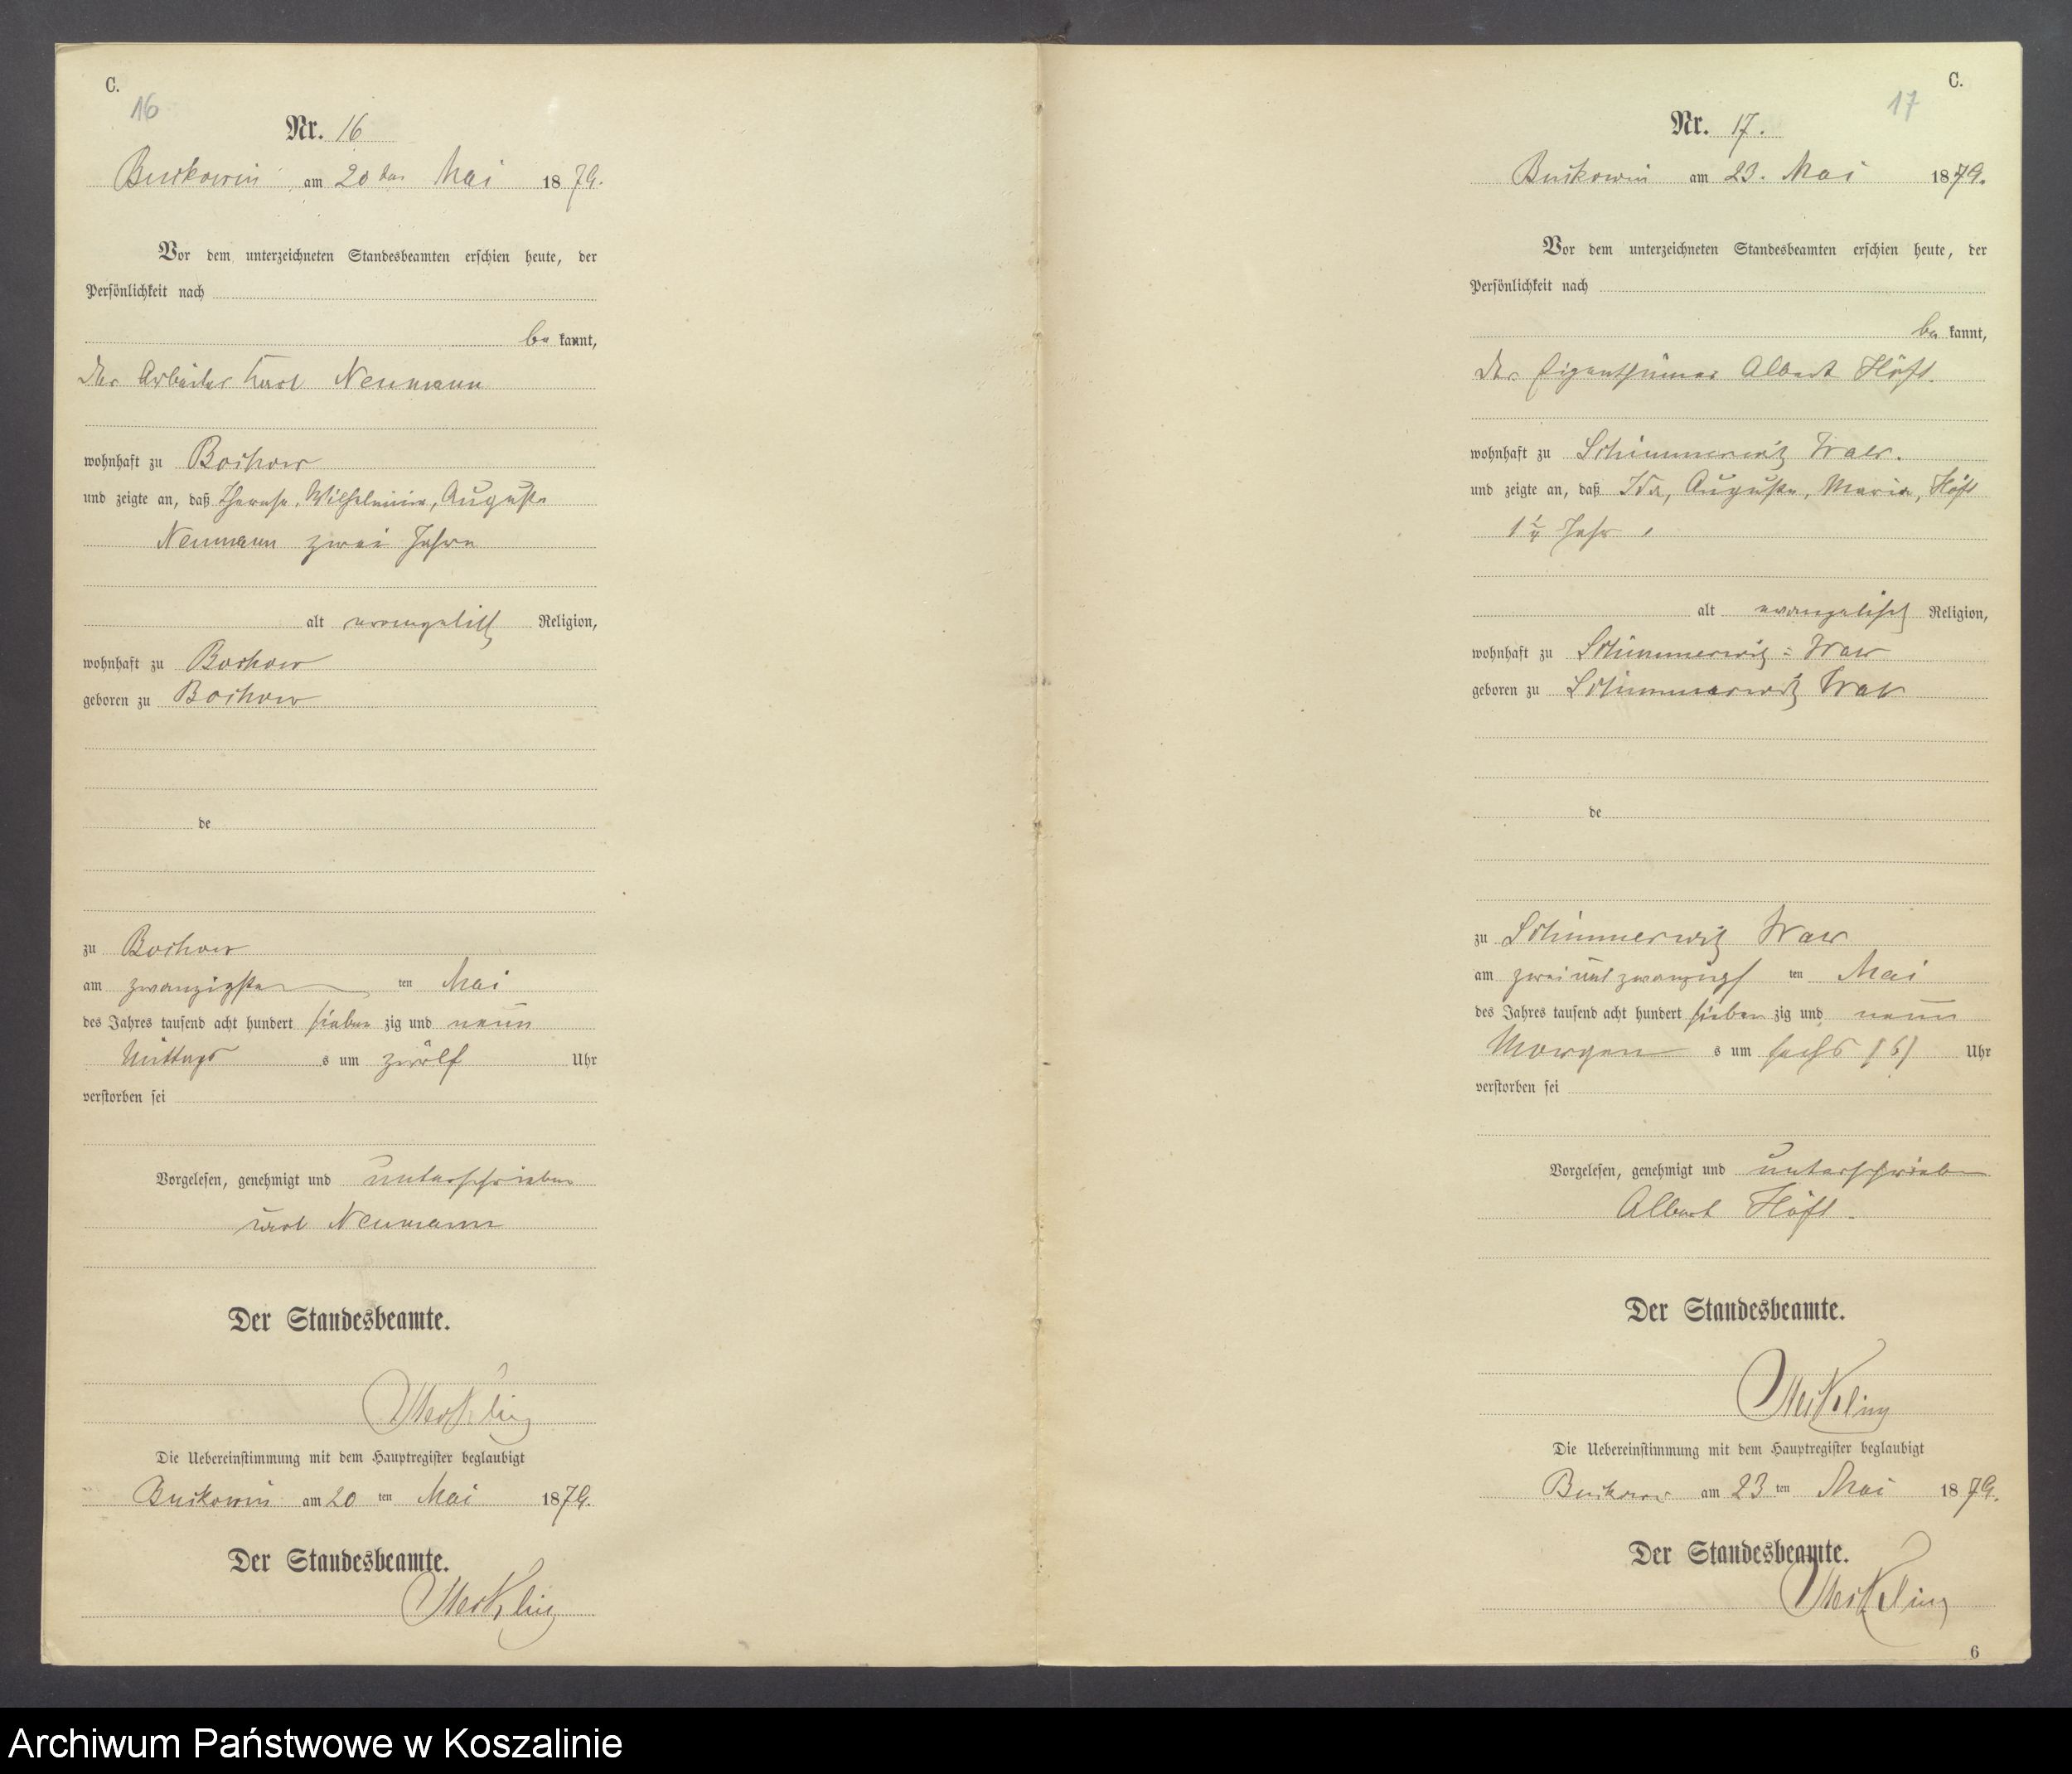 C.
16
Nr. 16
Buckowin am 20ten Mai 1879.
Vor dem unterzeichneten Standesbeamten erschien heute, der
Persönlichkeit nach
be kannt,
der Arbeiter Karl Neumann
wohnhaft zu Bochow
und zeigte an, daß Therese, Wilhelmine, Auguste
Neumann zwei Jahre
alt evangelisch Religion,
wohnhaft zu Bochow
geboren zu Bochow
de
zu Bochow
am zwanzigsten ten Mai
des Jahres tausend acht hundert sieben zig und neun
Mittags s um zwölf Uhr
verstorben sei
Vorgelesen, genehmigt und unterschrieben
Karl Neumann
Der Standesbeamte.
Die Uebereinstimmung mit dem Hauptregister beglaubigt
Buckowin am 20 ten Mai 1879.
Der Standesbeamte.
C.
17
Nr. 17.
Buckowin am 23. Mai 1879.
Vor dem unterzeichneten Standesbeamten erschien heute, der
Persönlichkeit nach
be kannt,
der Eigenthümer Albert Höft.
wohnhaft zu Schimmerwitz
und zeigte an, daß Ida, Auguste, Maria, Höft
1 1/4 Jahr,
alt evangelisch Religion,
wohnhaft zu Schimmerwitz
geboren zu Schimmerwitz
de
zu Schimmerwitz
am zweiundzwanzigs ten Mai
des Jahres tausend acht hundert sieben zig und neun
Morgen s um sechs (6) Uhr
verstorben sei
Vorgelesen, genehmigt und unterschrieben
Albert Höft.
Der Standesbeamte.
Die Uebereinstimmung mit dem Hauptregister beglaubigt
Buckowin am 23 ten Mai 1879.
Der Standesbeamte.
6
Archiwum Państwowe w Koszalinie